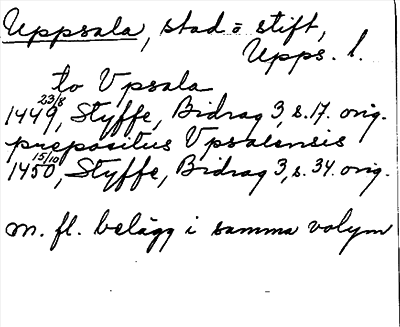 Uppsala, stad o stift,
Upps. l.
to Vpsala
1449 23/8, Styffe, Bidrag 3, s. 17. orig.
prepositus Vpsalensis
1450 15/10, Styffe, Bidrag 3, s. 34. orig.
m. fl. belägg i samma volym